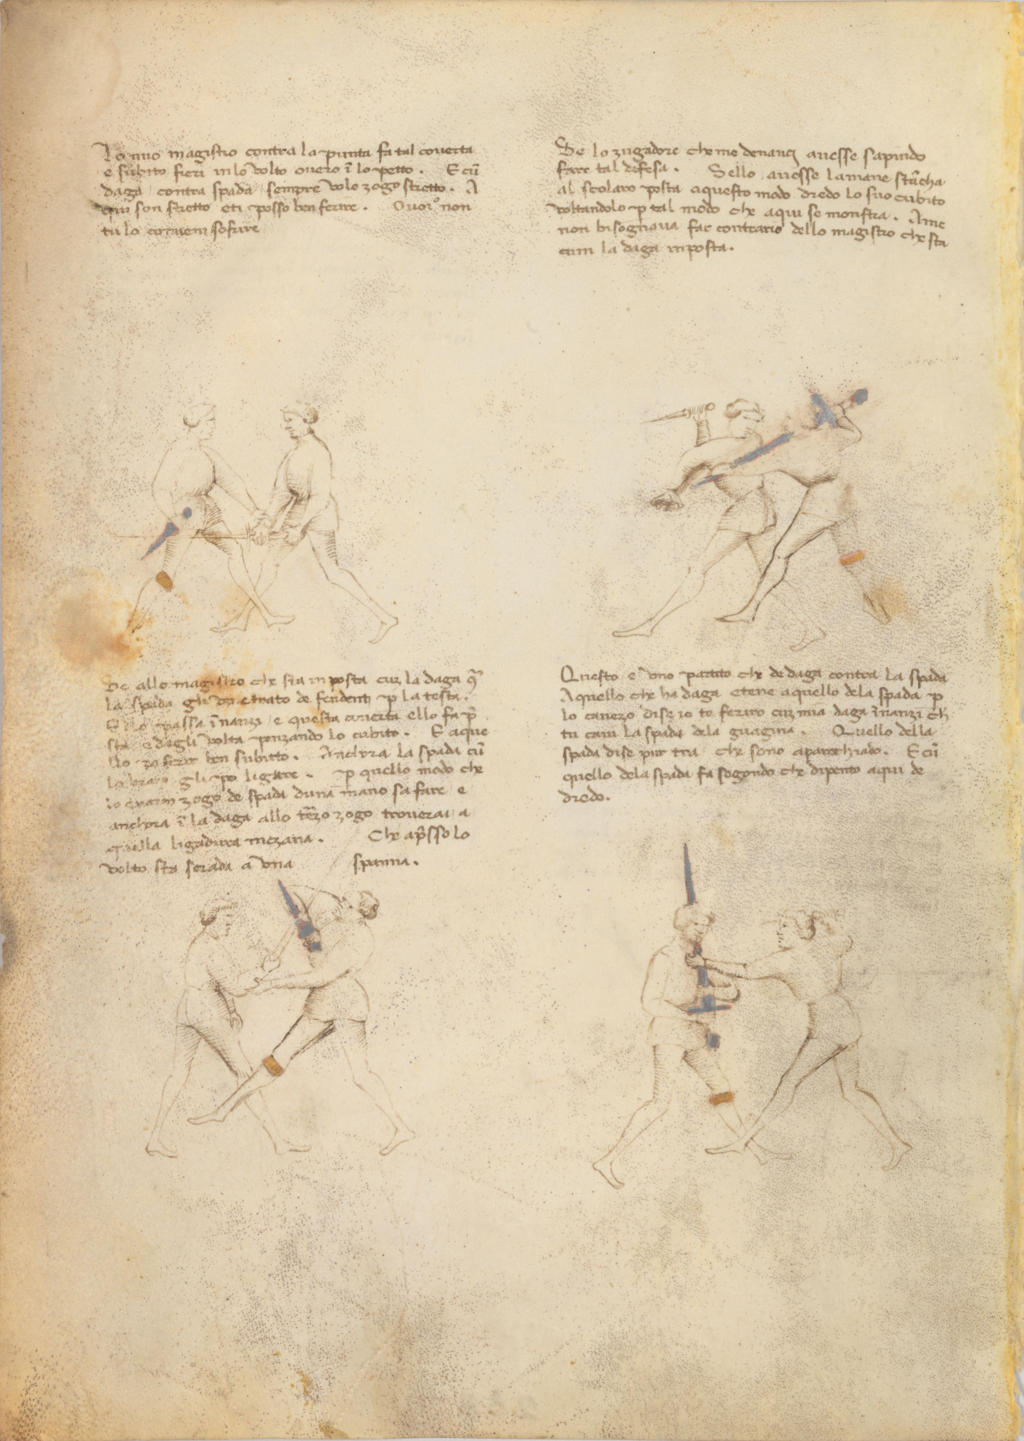 Lo mio magistro contra la punta fa tal coverta
e subito fieri in lo volto overo ī lo petto. E cū
daga contra spada sempre volo zogo stretto. A
qui son stretto eti posso ben ferire. O voi o non
tu lo
Se lo zugadore che me denanci avesse sapiudo
fare tal difesa. Sello avesse la mane stācha
al scolaro posta aquesto modo dredo lo suo cubito
voltandolo p tal modo che aqui se monstra. A me
non bisognava far contrario dello magistro che sta
cum la daga in posta.
Se allo magistro che sta in posta cuz la daga
la spada gli ven de fendent p la testa.
Ello passa īnanzi e questa coverta ello fa p
sta e dagli volta penzando lo cubito. E aque
llo po ferir ben subitto. Anchora la spada cū
lo brazo gli po ligare. p quello modo che
lo zogo de spada duna mano sa fare e
anchora ī la daga allo t̄zo zogo troverai a
quella ligadura mezana. Che ap̄sso lo
volto sta serada a una spanna.
Questo e uno partito che de daga contra la spada
Aquello che ha daga e tene aquello dela spada p
lo cavezo dise io te feriro cuz mia daga īnanzi ch
tu cavi la spada dela guagina. Quello della
spada dise pur tra che sono aparechiado. E cū
quello dela spada fa segondo che dipento aqui de
dredo.